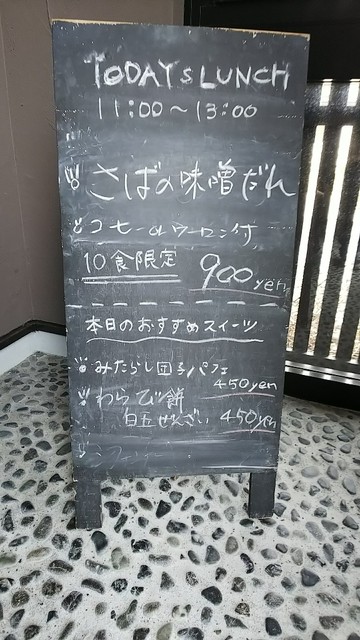 TODAY'S LUNCH
11:00～13:00
さばの味噌だれ
コーヒー or ウーロン付
10食限定 900yen
本日のおすすめスイーツ
みたらし団子パフェ
450yen
わらび餅
白玉ぜんざい 450yen